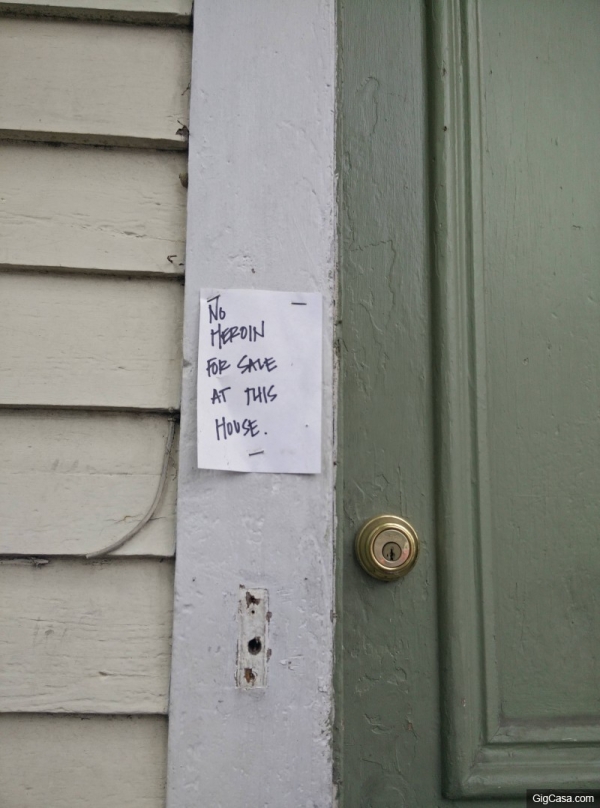 No
HEROIN
FOR SALE
AT THIS
HOUSE.
GigCasa.com